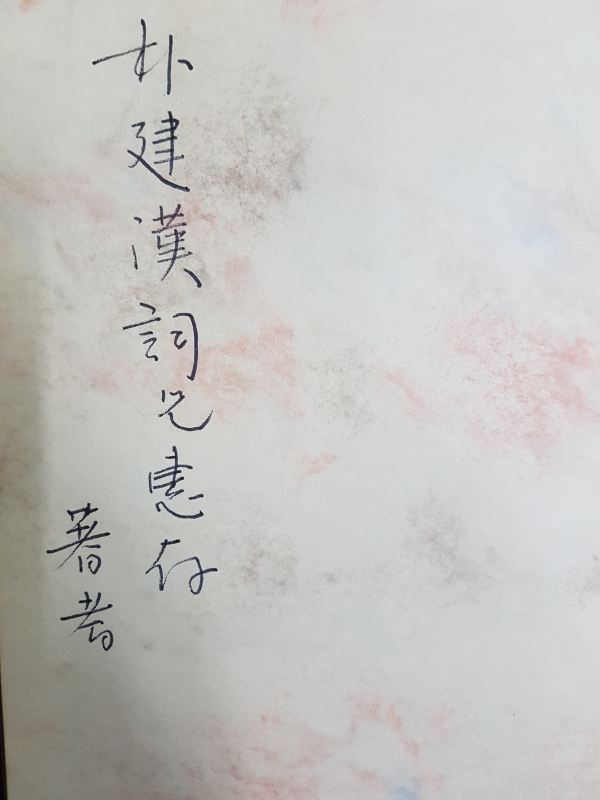 朴建漢詞兄惠存
著者